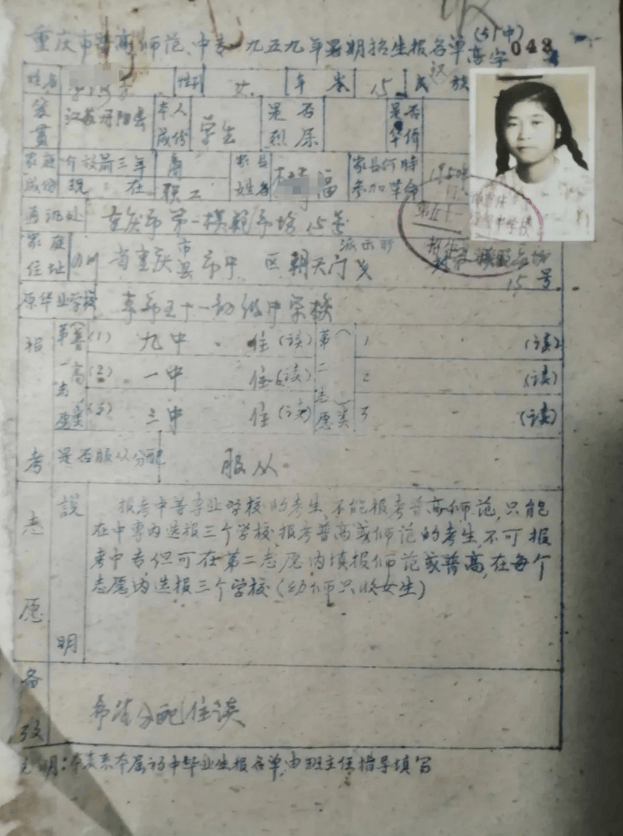 重庆市普高师范、中专一九五九年暑期招生报名单(51中)高字048
姓名 性别 女 年岁 15 民族 汉
籍贯 江苏丹阳县 本人成份 学生 是否烈属 是否华侨
家庭成份 解放前三年 商 现在 职工 家长姓名 福 家长何时参加革命
通讯处 重庆市第一模范市场15号
家庭住址 四川省重庆市县市中区朝天门 派出所 15号
原毕业学校 重庆五十一初级中学校
报考志愿
第一志愿 (1) 九中 住(读) 第二志愿 1 (读)
(2) 一中 住(读) 2 (读)
(3) 三中 住(读) 3 (读)
是否服从分配 服从
说明
报考中等专业学校的考生,不能报考普高师范,只能
在中专内选报三个学校,报考普高或师范的考生,不可报
考中专但可在第二志愿内填报师范或普高,在每个
志愿内选报三个学校(幼师只收女生)
备考 希望分配住读
说明:本表系本届初中毕业生报名单,由班主任指导填写